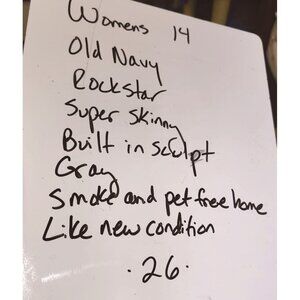 Womens 14
Old Navy
Rockstar
Super Skinny
Built in sculpt
Gray
Smoke and pet free home
Like new condition
· 26 ·